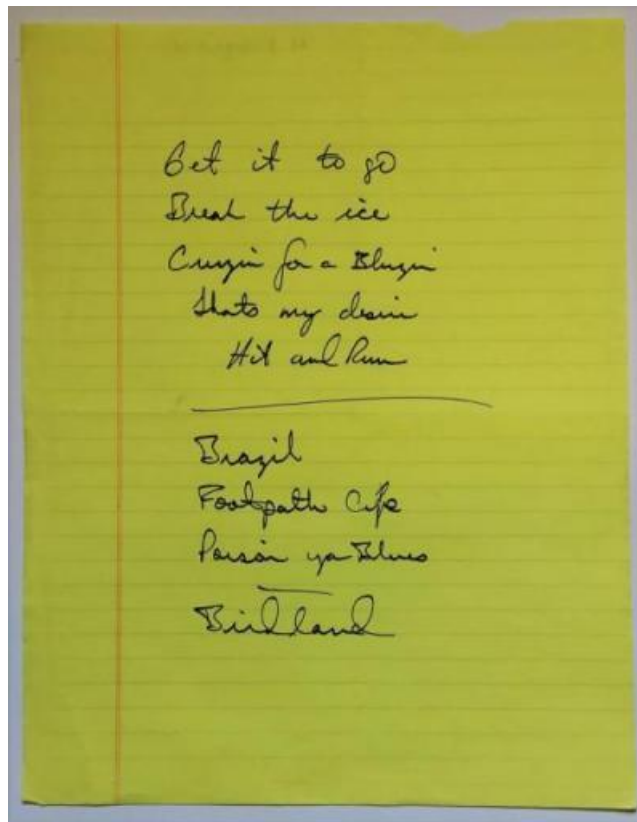 Get it to go
Break the ice
Cruzin for a Bluzin
Thats my desire
Hit and Run
Brazil
Footpath Cafe
Poison ya Blues
Birdland